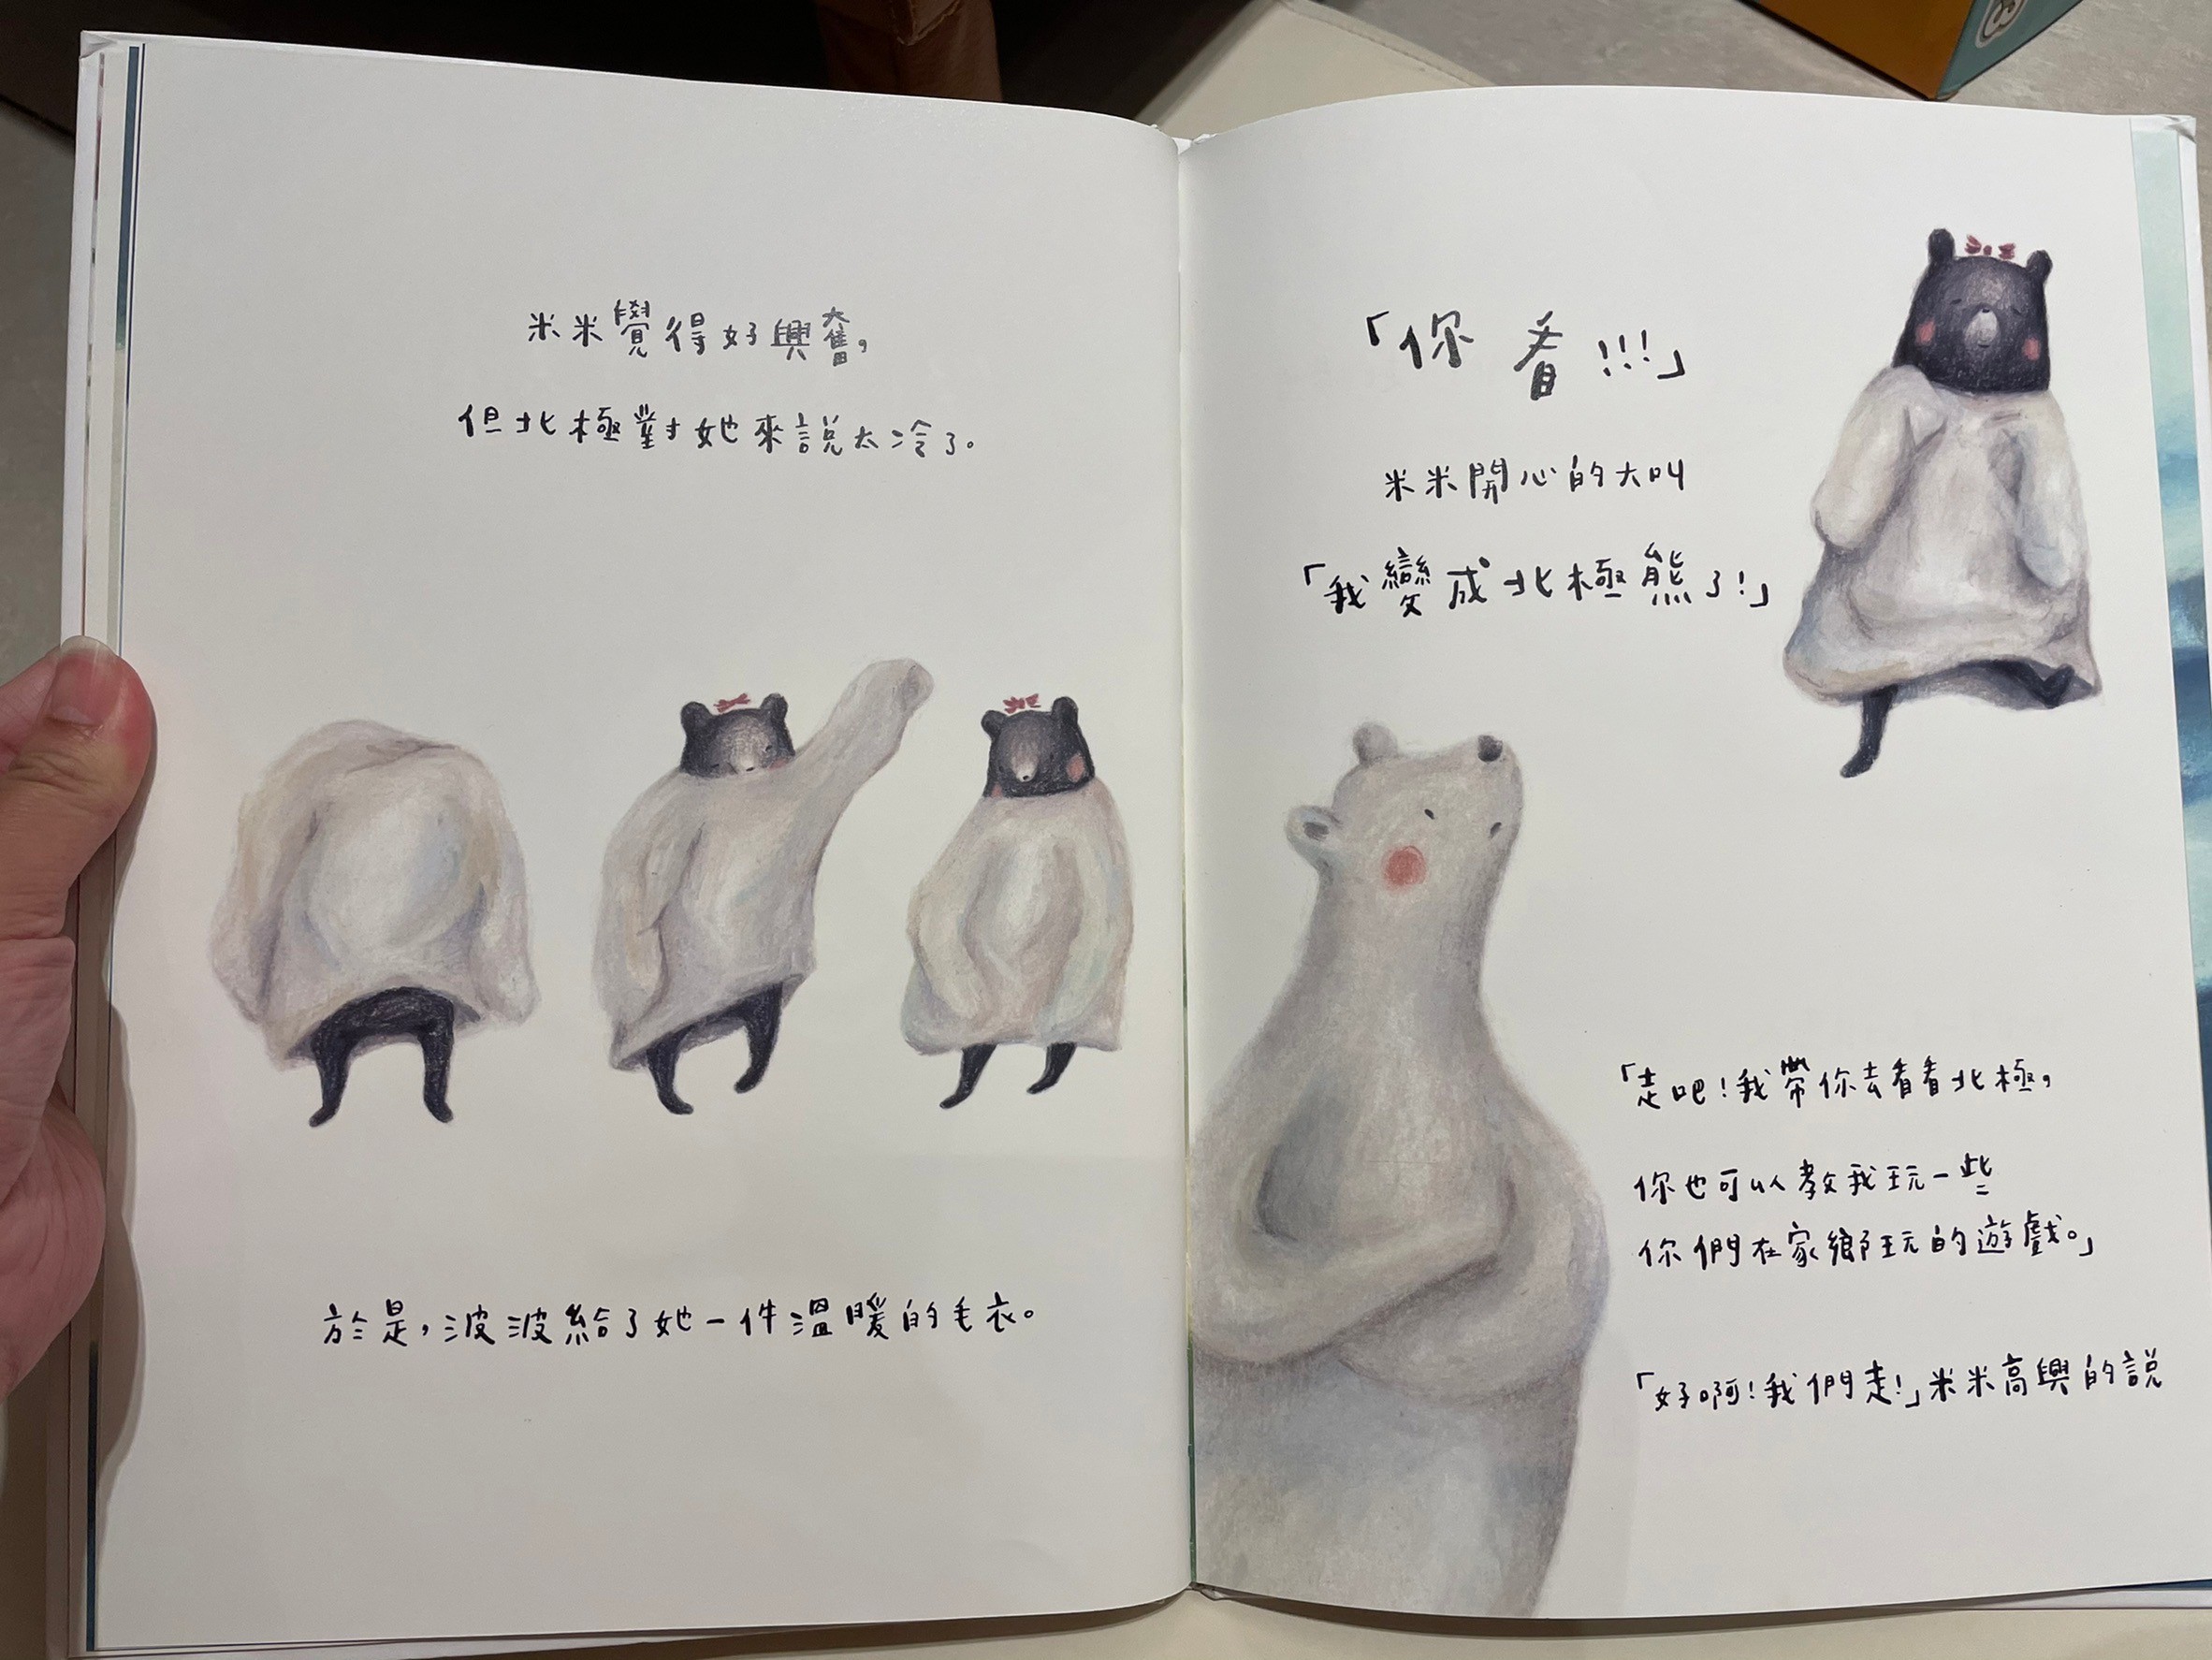 米米覺得好興奮，
但北極對她來説太冷了。
於是，波波給了她一件溫暖的毛衣。
「你看!!!」
米米開心的大叫
「我變成北極熊了!」
「走吧!我帶你去看看北極，
你也可以教我玩一些
你們在家鄉玩的遊戲。」
「好啊!我們走!」米米高興的説